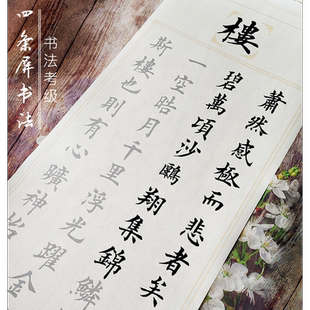 四条屏书法
书法考级
樓
蕭然感極而悲者矣
碧萬頃沙鷗翔集錦鱗
一空皓月千里浮光躍金
斯樓也則有心曠神怡